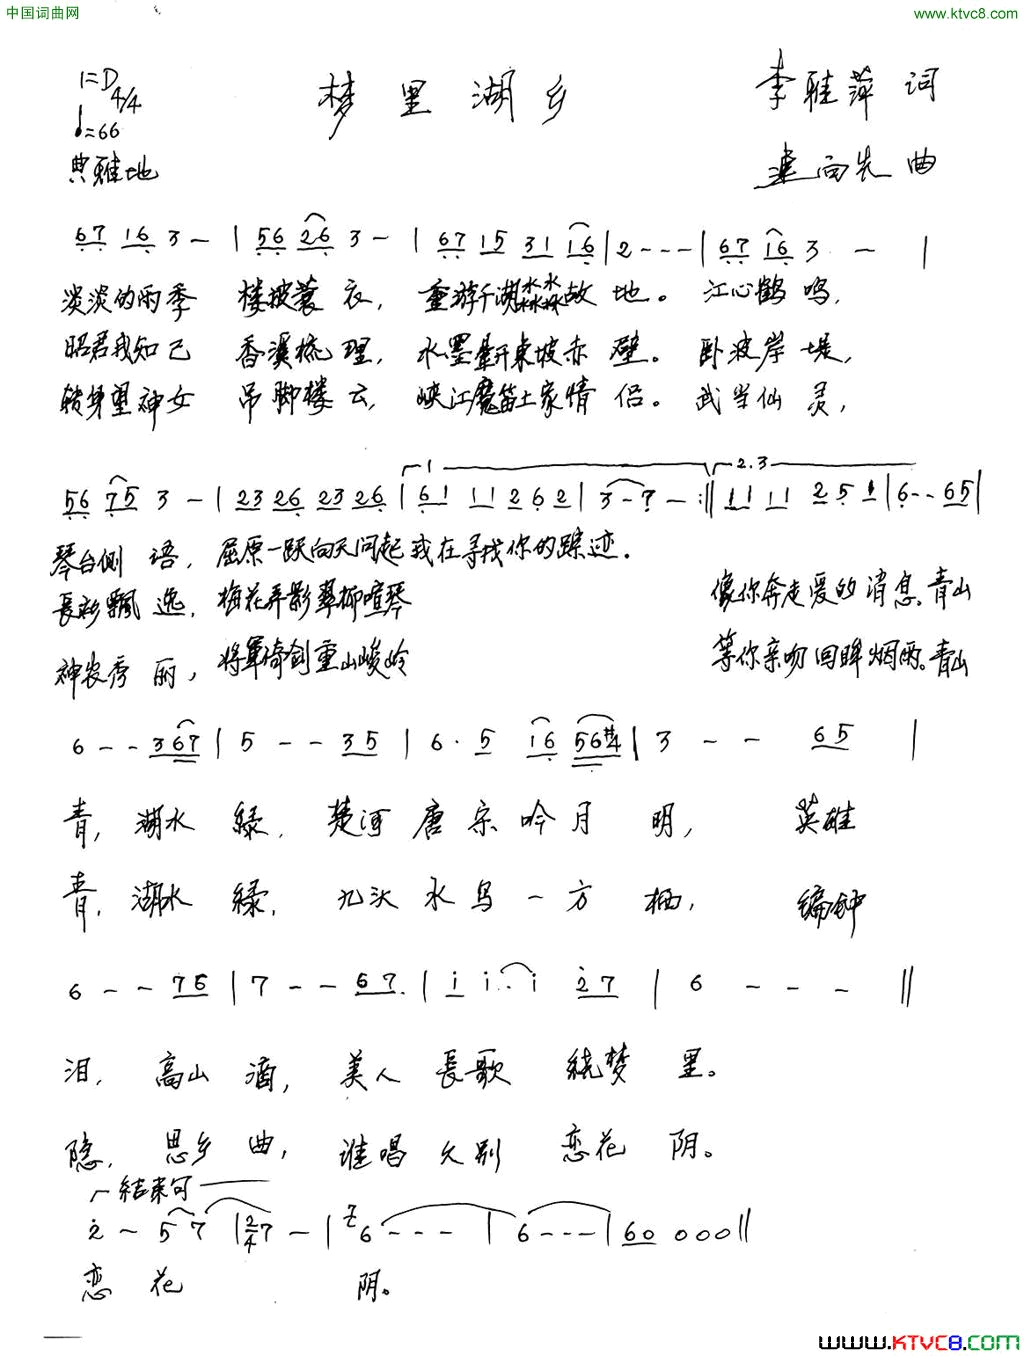 中国词曲网
www.ktvc8.com
1=D 4/4
梦里湖乡
李雅萍 词
♩=66
典雅地
连向先 曲
67 16 3 - | 56 26 3 - | 67 15 31 16 | 2 - - - | 67 16 3 - |
淡淡的雨季 楼披蓑衣, 重游千湖水故地。江心鹤鸣,
昭君我知己 香溪梳理, 水墨晕开東坡赤壁。卧波岸堤,
转身望神女 吊脚楼云, 峡江魔笛土家情侣。武当仙灵,
1
2.3
56 75 3 - | 23 26 23 26 | 61 11 2 6 2 | 3 - 7 - :|| 11 11 2 5 1 | 6 - - 65 |
琴台侧语, 屈原一跃向天问起我在寻找你的踪迹.
長衫飘逸, 梅花弄影翠柳喧琴 像你奔走爱的消息.青山
神农秀丽, 将軍倚剑重山峻岭 等你亲吻回眸烟雨。青山
6 - - 367 | 5 - - 35 | 6 · 5 16 56#4 | 3 - - 65 |
青, 湖水绿, 楚河唐宗吟月明, 英雄
青, 湖水绿, 九头水鸟一方栖, 编钟
6 - - 76 | 7 - - 67 | i i · i 27 | 6 - - - ||
泪, 高山酒, 美人長歌繞梦里。
隐, 思乡曲, 谁唱久别恋花阴。
結束句
2 - 5 7 | 2/4 7 - | 7 6 - - - | 6 - - - | 60 000 ||
恋花阴。
www.KTVC8.com